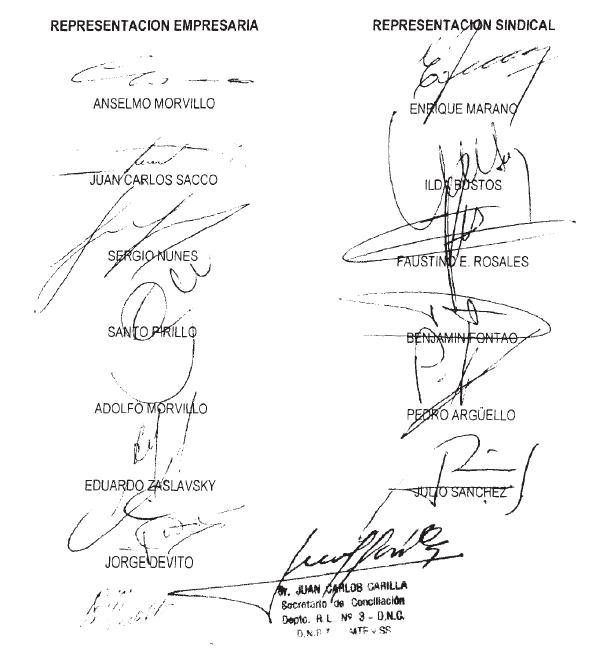 REPRESENTACION EMPRESARIA
ANSELMO MORVILLO
JUAN CARLOS SACCO
SERGIO NUNES
SANTO PIRILLO
ADOLFO MORVILLO
EDUARDO ZASLAVSKY
JORGE DEVITO
REPRESENTACION SINDICAL
ENRIQUE MARANO
ILDA BUSTOS
FAUSTINO E. ROSALES
BENJAMIN FONTAO
PEDRO ARGÜELLO
JULIO SANCHEZ
Dr. JUAN CARLOS CARILLA
Secretario de Conciliación
Depto. R.L. Nº 3 - D.N.C.
D.N.R.T. MTE y SS